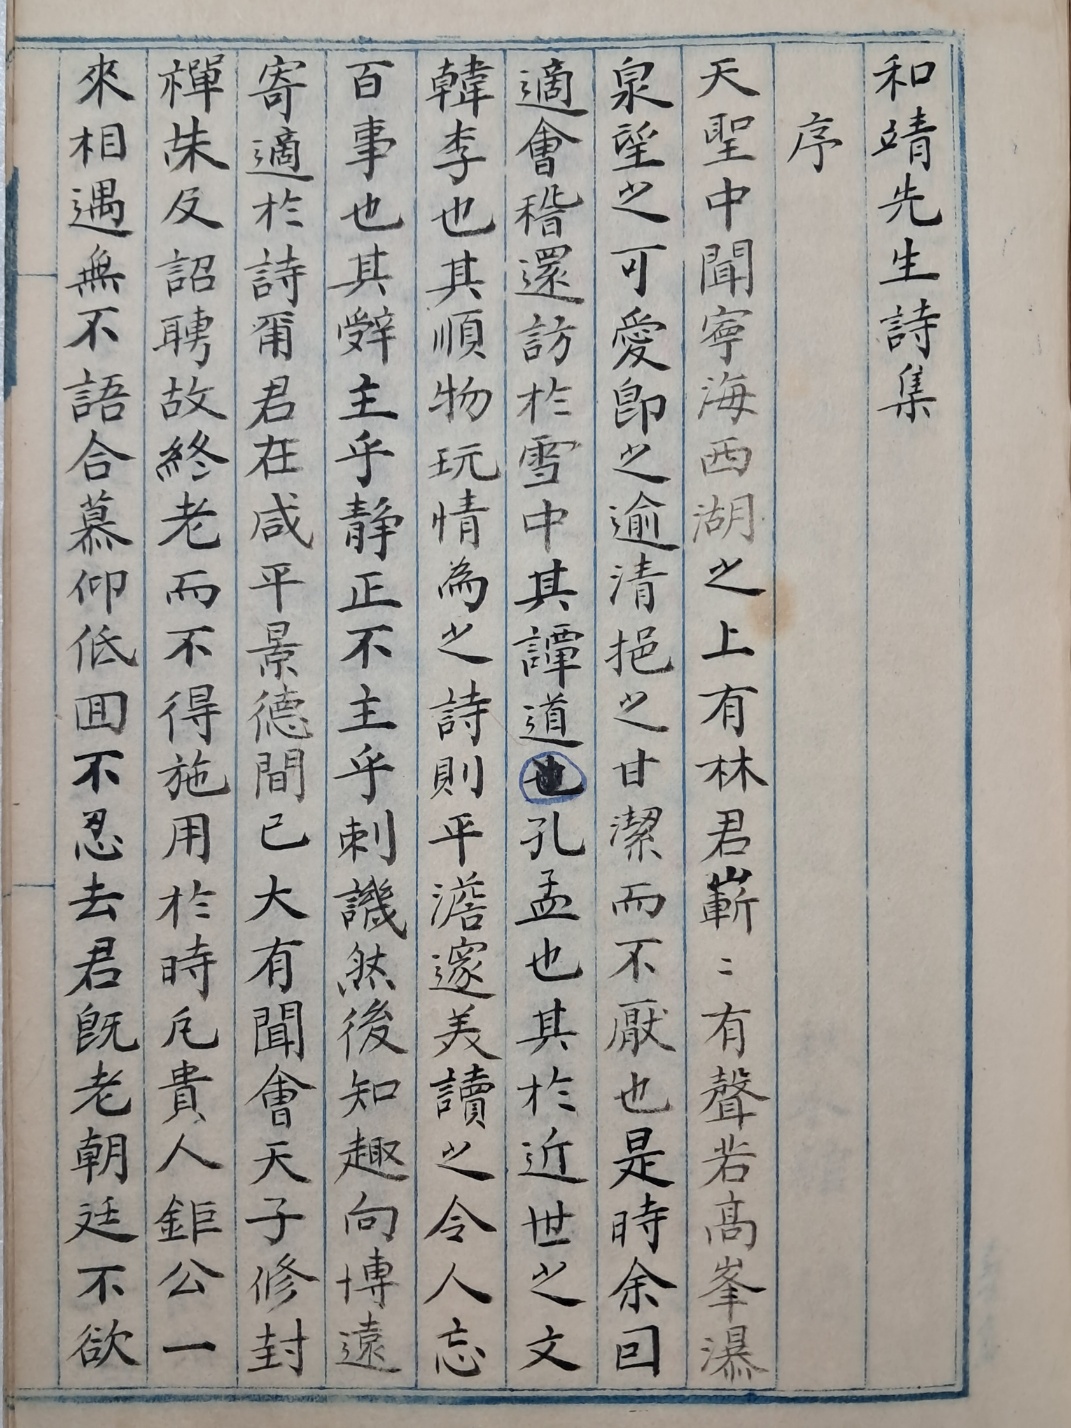 和靖先生詩集
序
天聖中聞寧海西湖之上有林君嶄〻有聲若高峯瀑
泉望之可愛即之逾清挹之甘潔而不厭也是時余回
適會稽還訪於雪中其譚道也孔孟也其於近世之文
韓李也其順物玩情為之詩則平澹邃美讀之令人忘
百事也其辤主乎静正不主乎刺譏然後知趣向博遠
寄適於詩爾君在咸平景德間已大有聞會天子修封
禪未及詔聘故終老而不得施用於時凡貴人鉅公一
來相遇無不語合慕仰低囬不忍去君既老朝廷不欲